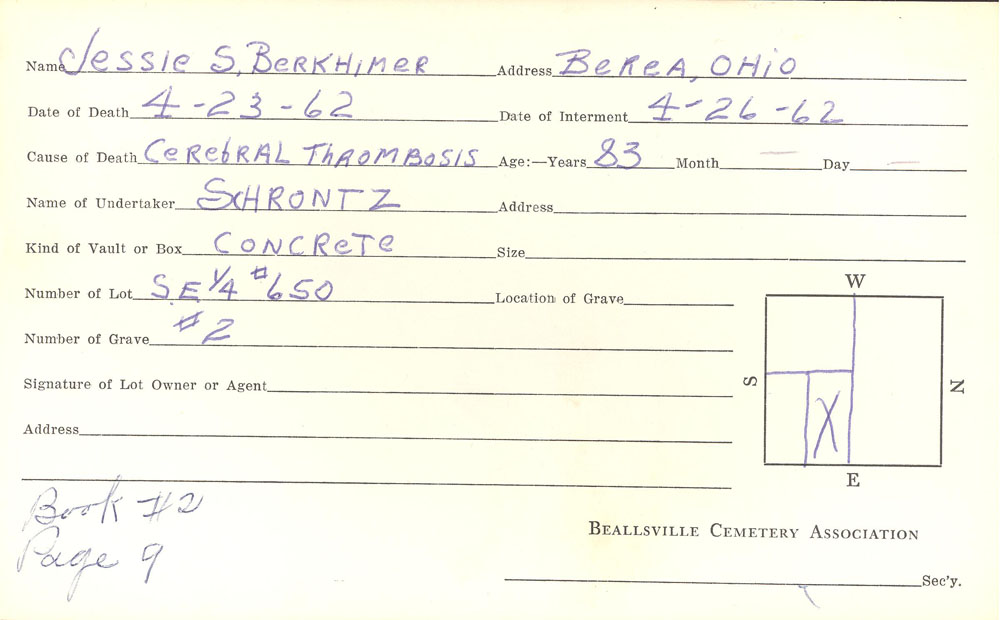 Name Jessie S. Berkhimer Address Berea, Ohio
Date of Death 4-23-62 Date of Interment 4-26-62
Cause of Death Cerebral Thrombosis Age:—Years 83 Month — Day —
Name of Undertaker Schrontz Address
Kind of Vault or Box Concrete Size
Number of Lot S.E 1/4 #650 Location of Grave
Number of Grave #2
Signature of Lot Owner or Agent
Address
W
S N
X
E
Book #2
Page 9
Beallsville Cemetery Association
Sec'y.